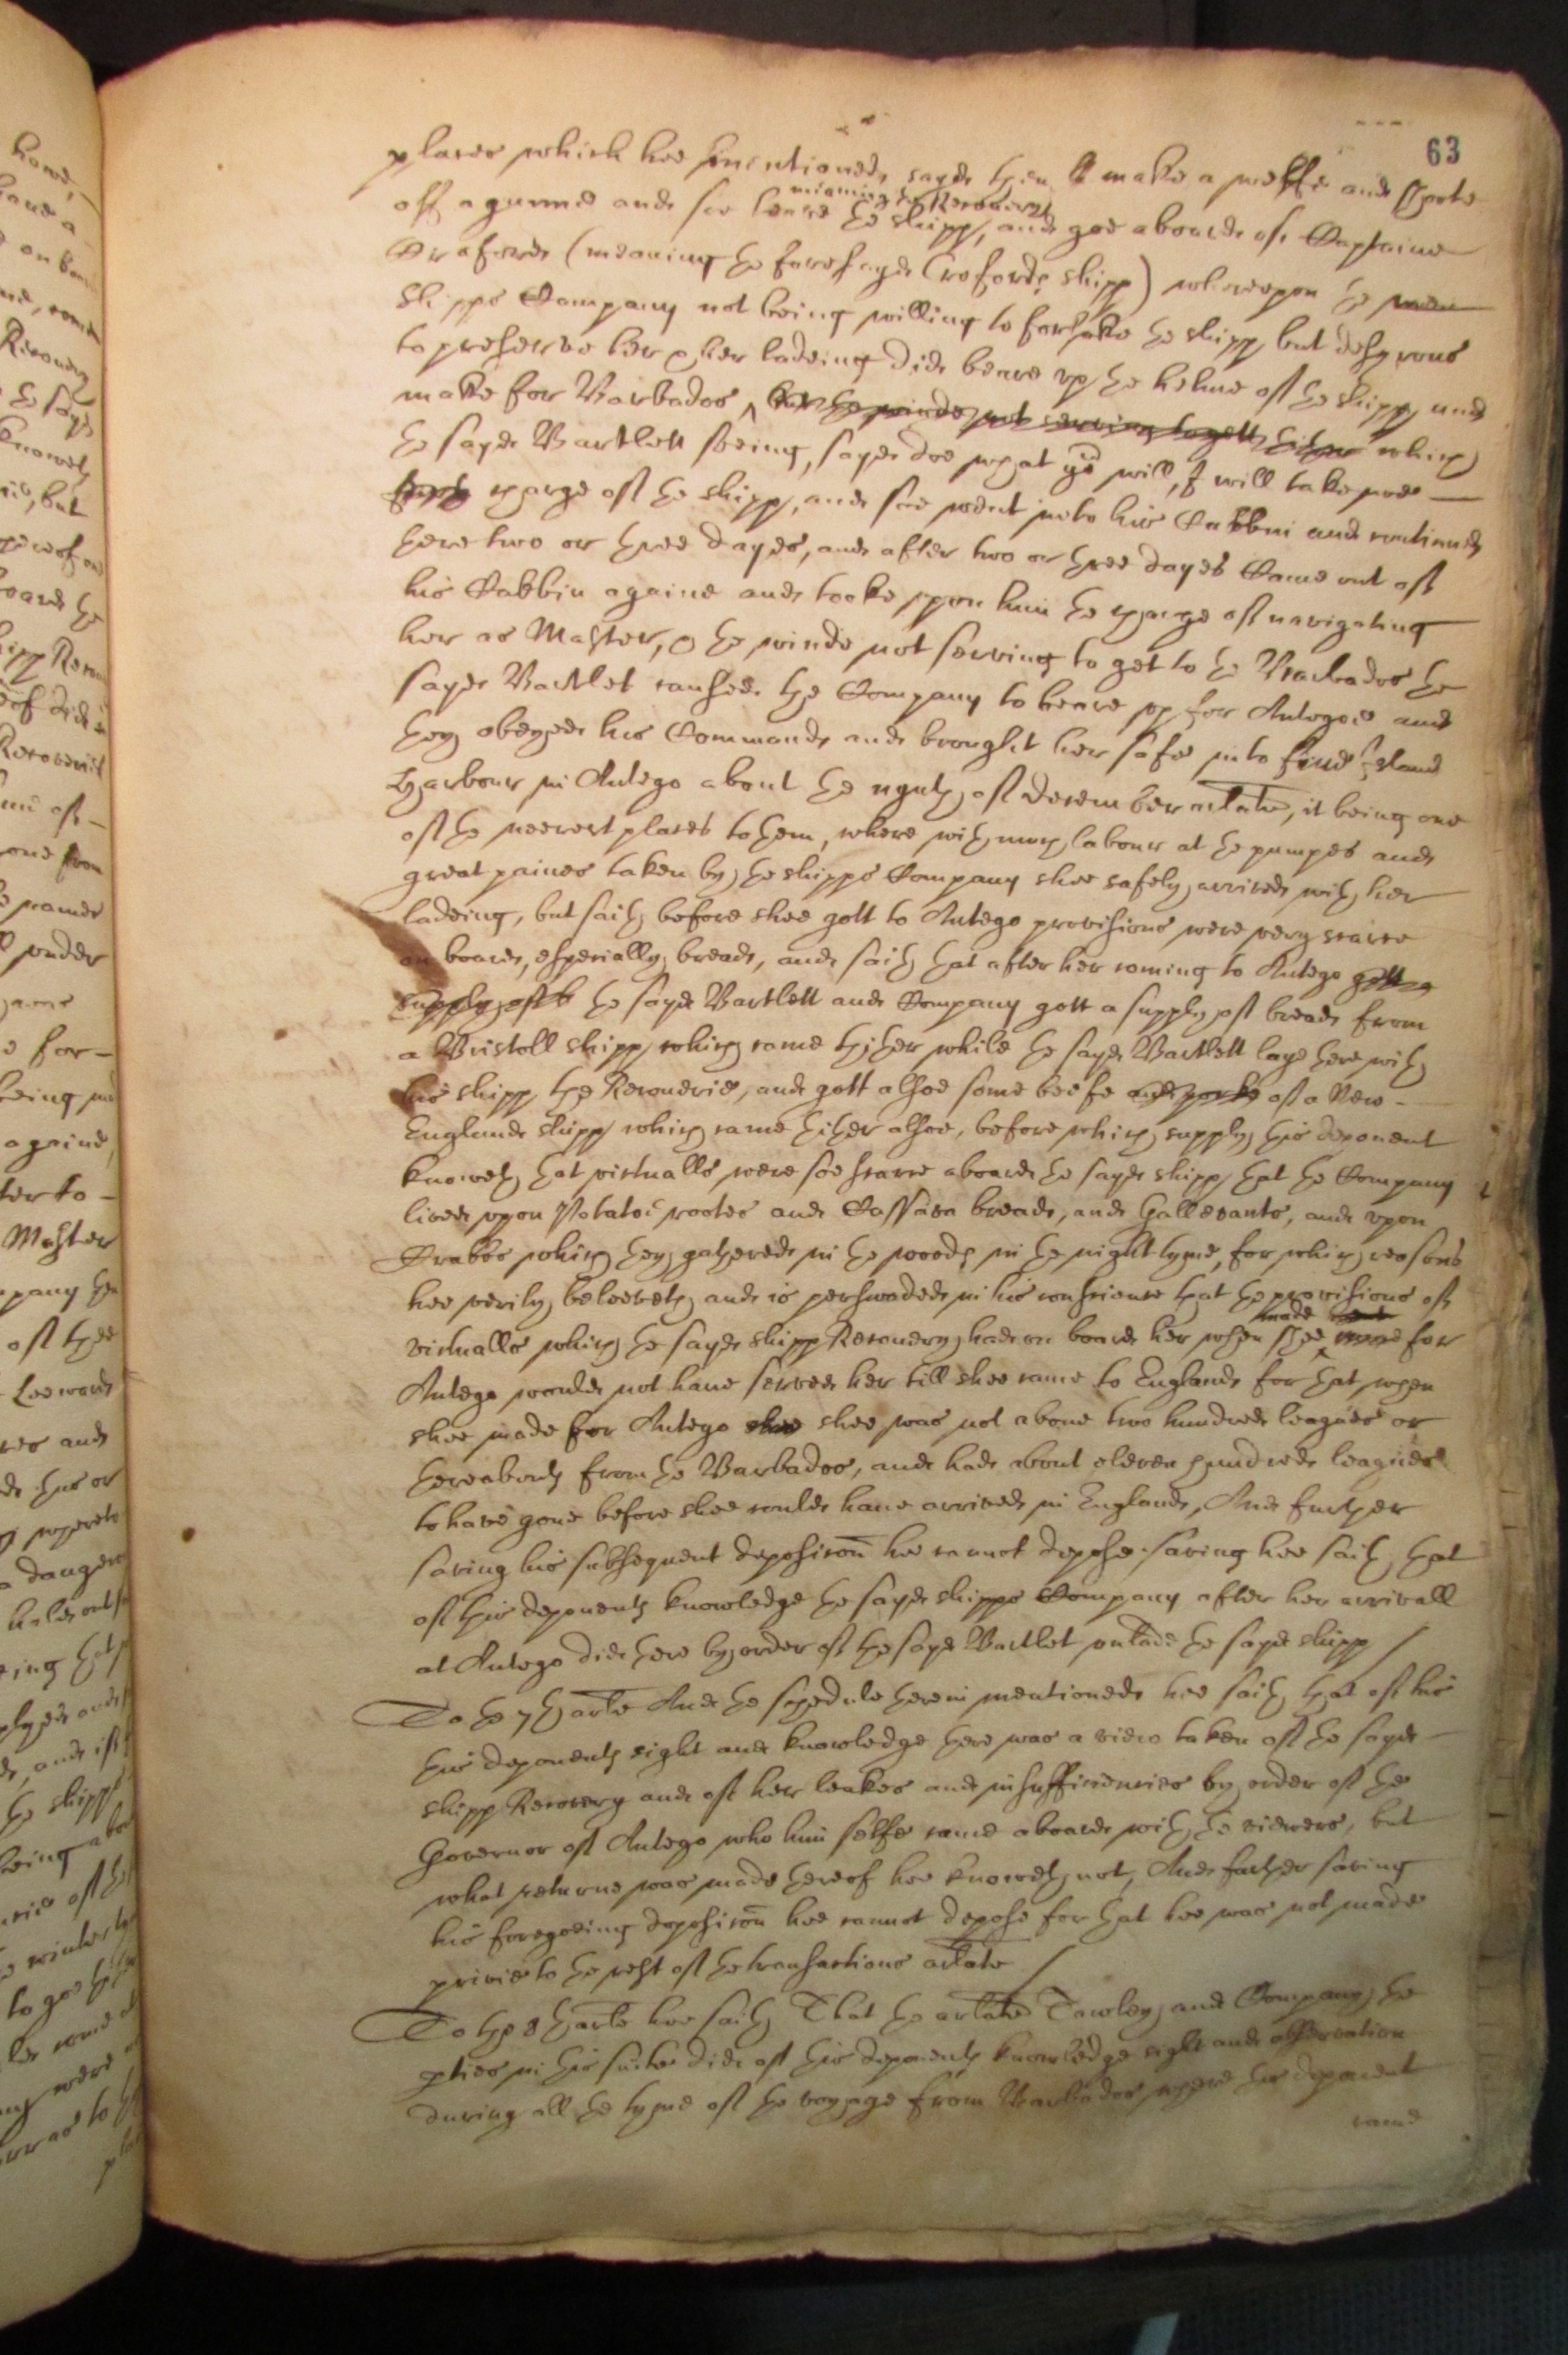 63
places which hee mentioned, sayd then make a weffe and shote
off a gunne and soe leave the shipp, and goe aboard of Captaine
meaning the Recoverie
Croford (meaning the foresayd Crofords shipp) whereupon the men
shipps Company not being willing to forsake the shipp but desyrous
to preserve her & her ladeing did beare up the helme of the shipp and
make for Barbados, but the winde not serving to gett thither which
the sayd Bartlett seeing, sayd doe what you will, I will take noe
charge of the shipp, and soe went into his Cabbin and continued
there two or three dayes, and after two or three dayes Came out of
his Cabbin againe and tooke upon him the charge of navigating
her as Master, & the winde not serving to get to the Barbados the
sayd Bartlet caused the Company to beare up for Antego and
they obeyed his Commands and brought her safe into five Island
harbour in Antego about the eighth of December arlate, it being one
of the neerest places to them, where with much labour at the pumpes and
great paines taken by the shipps Company shee safely arrived with her
ladeing, but saith before shee gott to Antego provisions were very scarce
on board, especially bread, and saith that after her coming to Antego gott a
supply of b the sayd Bartlett and Company gott a supply of bread from
a Bristoll shipp which came thither while the sayd Bartlett laye there with
his shipp the Recoverie, and gott alsoe some beefe and porke of a New
England shipp which came thither alsoe, before which supply this deponent
knoweth that victualls were soe scarce aboard the sayd shipp that the Company
lived upon Potatoe rootes and Cassava bread, and Gallevants, and upon
Crabbs which they gathered in the woods in the night tyme, for which reasons
hee verily beleeveth and is perswaded in his conscience that the provisions of
victualls which the sayd shipp Recovery had on board her when shee made for
Antego would not have served her till shee came to England for that when
shee made for Antego shee shee was not above two hundred leagues or
thereabouts from the Barbados, and had about eleven hundred leagues
to have gone before shee could have arrived in England, And further
saving his subsequent deposicon hee cannot depose. saving hee saith that
of this deponents knowledge the sayd shipps Company after her arrivall
at Antego did there by order of the sayd Bartlet unlade the sayd shipp /
To the 7th arle And the schedule therein mentioned hee saith that of his
this deponents sight and knowledge there was a view taken of the sayd
shipp Recovery and of her leakes and insufficiencies by order of the
Governor of Antego who him selfe came aboard with the viewers, but
what returne was made thereof hee knoweth not, And further saving
his foregoeing deposicon hee cannot depose for that hee was not made
privie to the rest of the transactions arlate /
To the 8th arle hee saith That the arlate Tawley and Company the
pties in this suite did of this deponents knowledge sight and observation
during all the tyme of the voyage from Barbados where this deponent
came